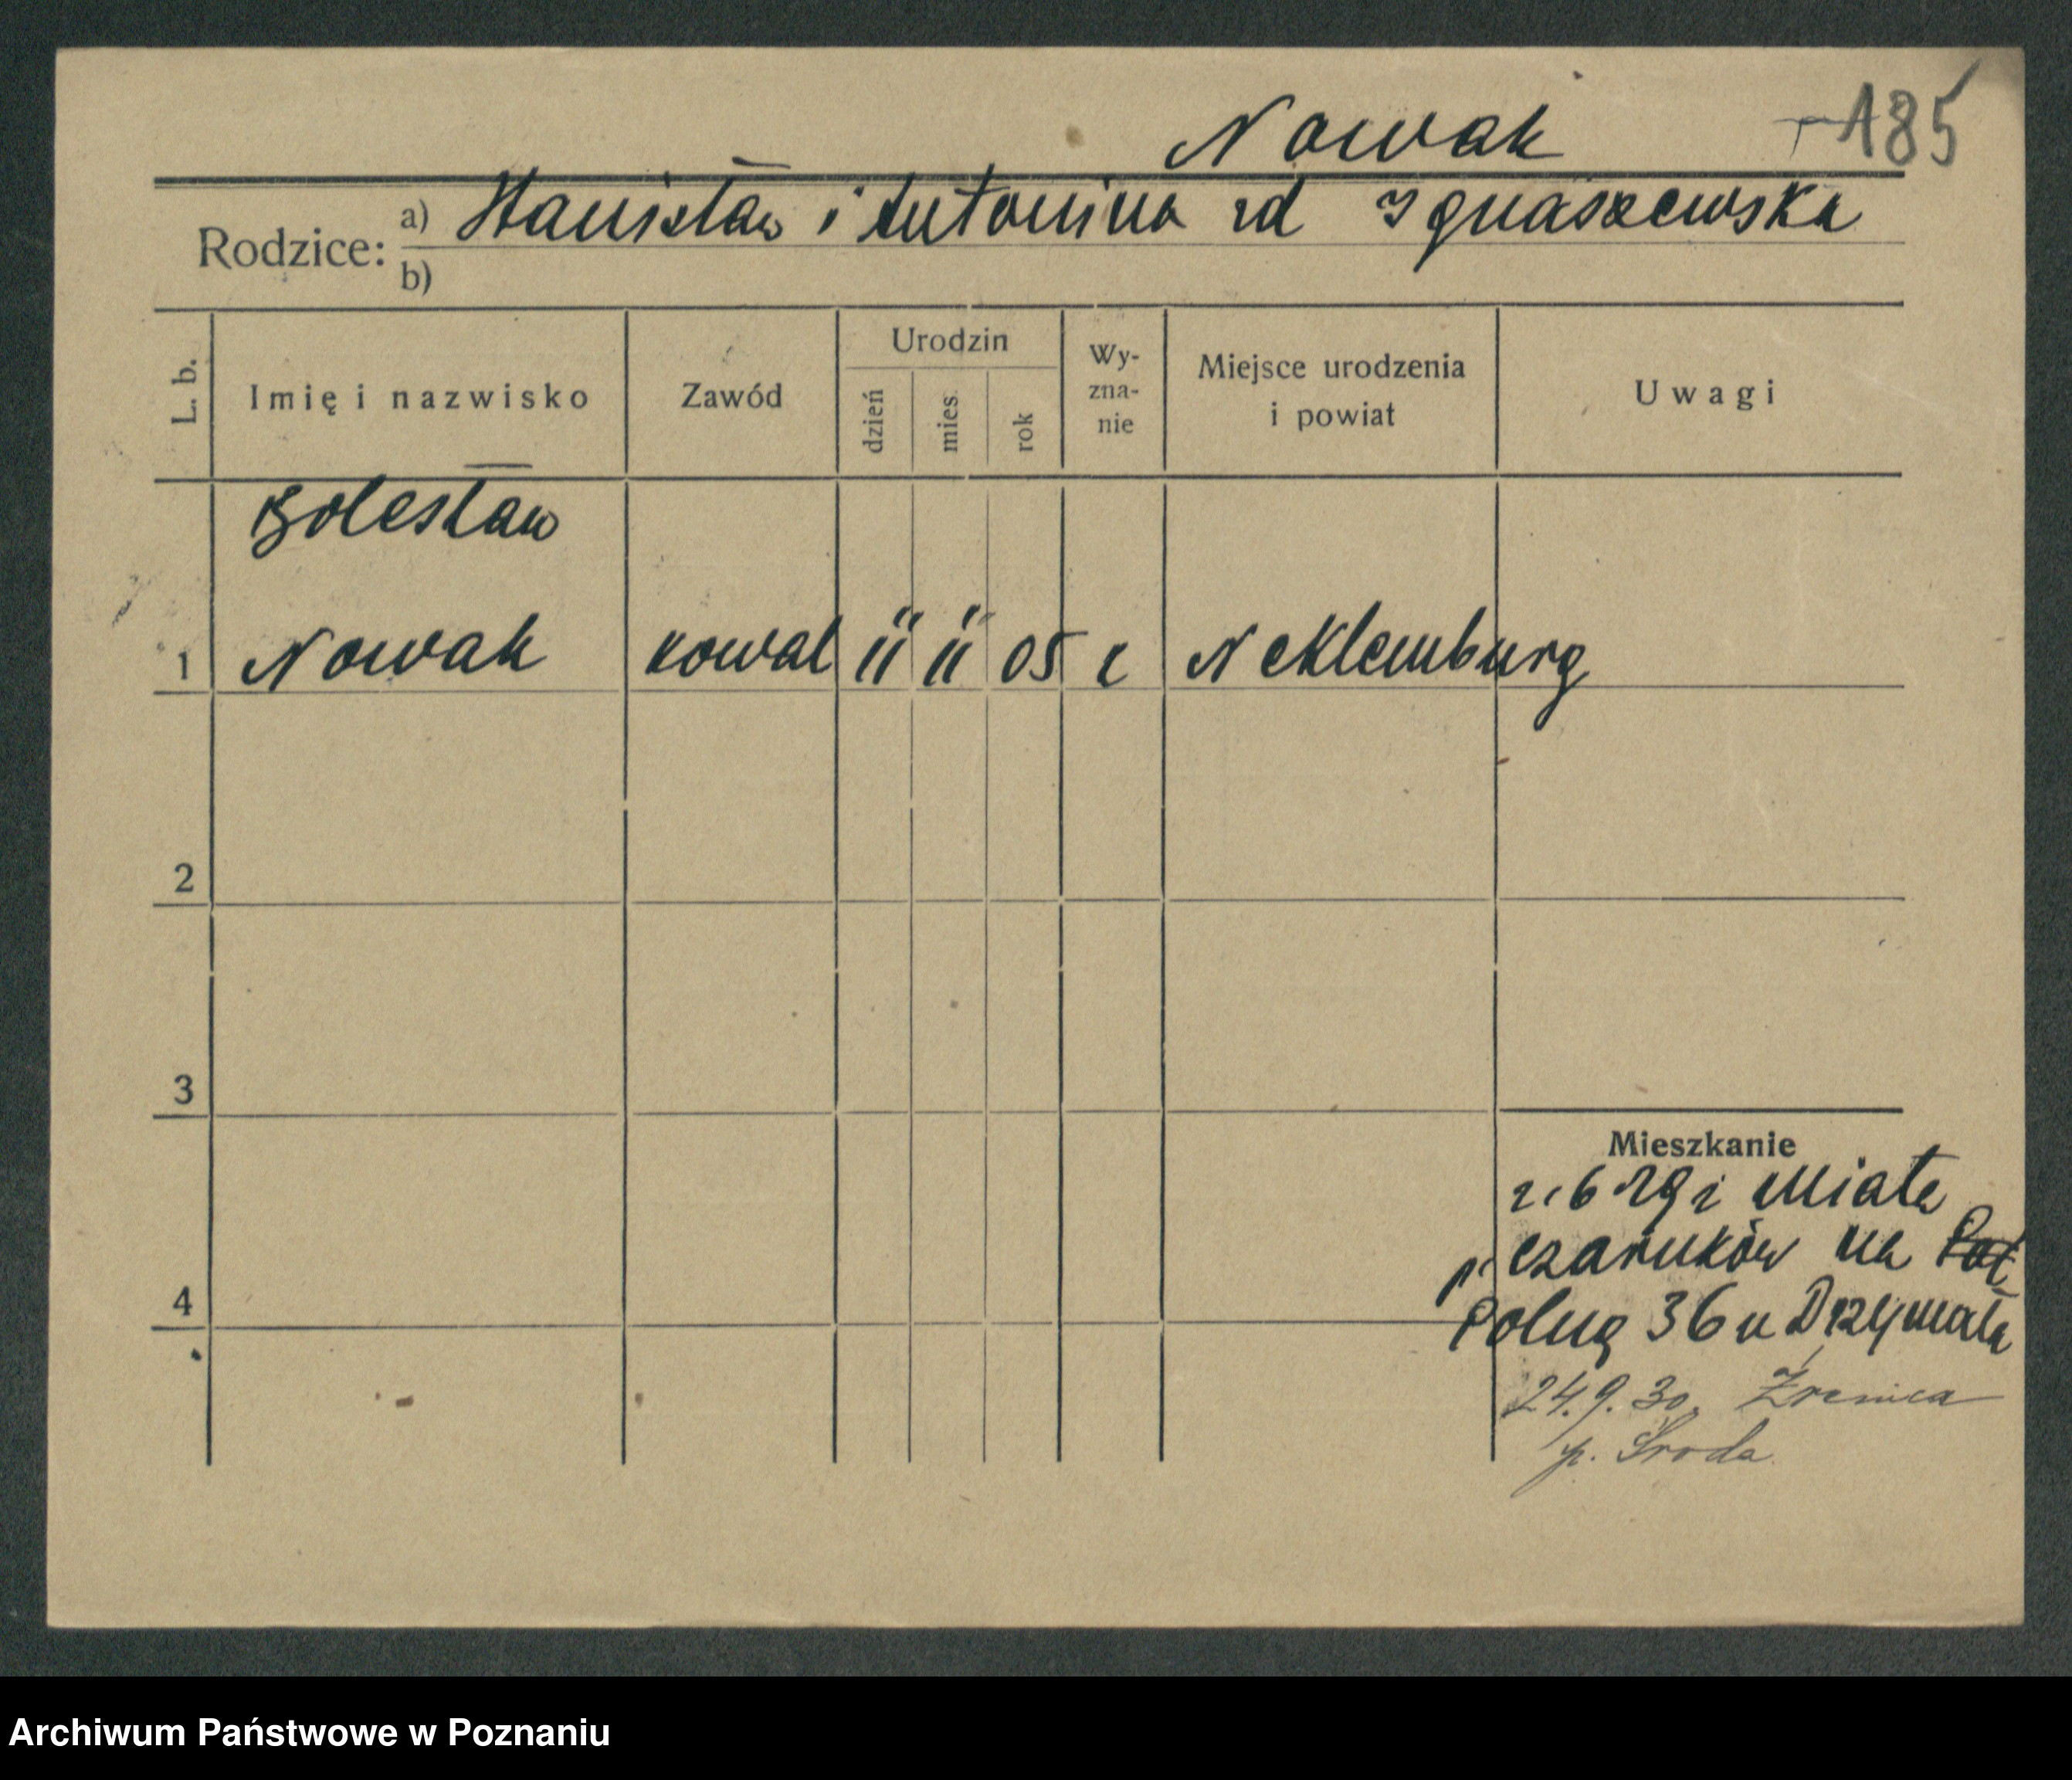 Nowak 185
Rodzice: a) Stanisław i Antonina rd Ignaszewska
b)
L. b. Imię i nazwisko Zawód Urodzin dzień mies. rok Wy-zna-nie Miejsce urodzenia i powiat Uwagi
Bolesław
1 Nowak kowal 11 11 05 Meklemburg
2
3
Mieszkanie
6 29 z Miała
p. czarnków na Poł
4
Polną 36 u Drzymała
24.9.30. Źrenica
p. Środa
Archiwum Państwowe w Poznaniu